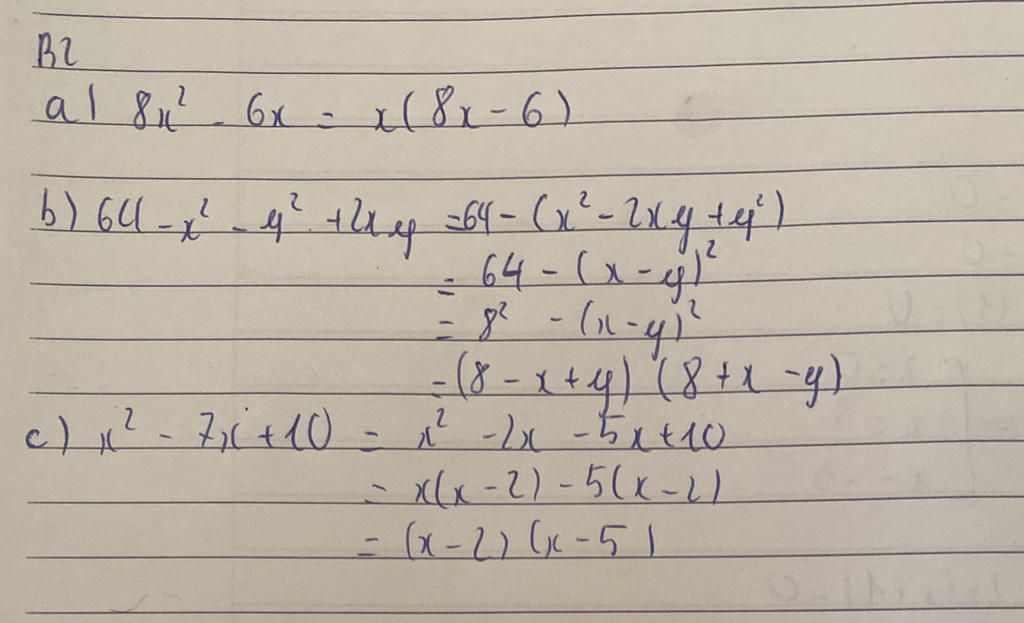 B2
a) 8x² - 6x = x(8x - 6)
b) 64 - x² - y² + 2xy = 64 - (x² - 2xy + y²)
= 64 - (x - y)²
= 8² - (x - y)²
= (8 - x + y) (8 + x - y)
c) x² - 7x + 10 = x² - 2x - 5x + 10
= x(x - 2) - 5(x - 2)
= (x - 2) (x - 5)